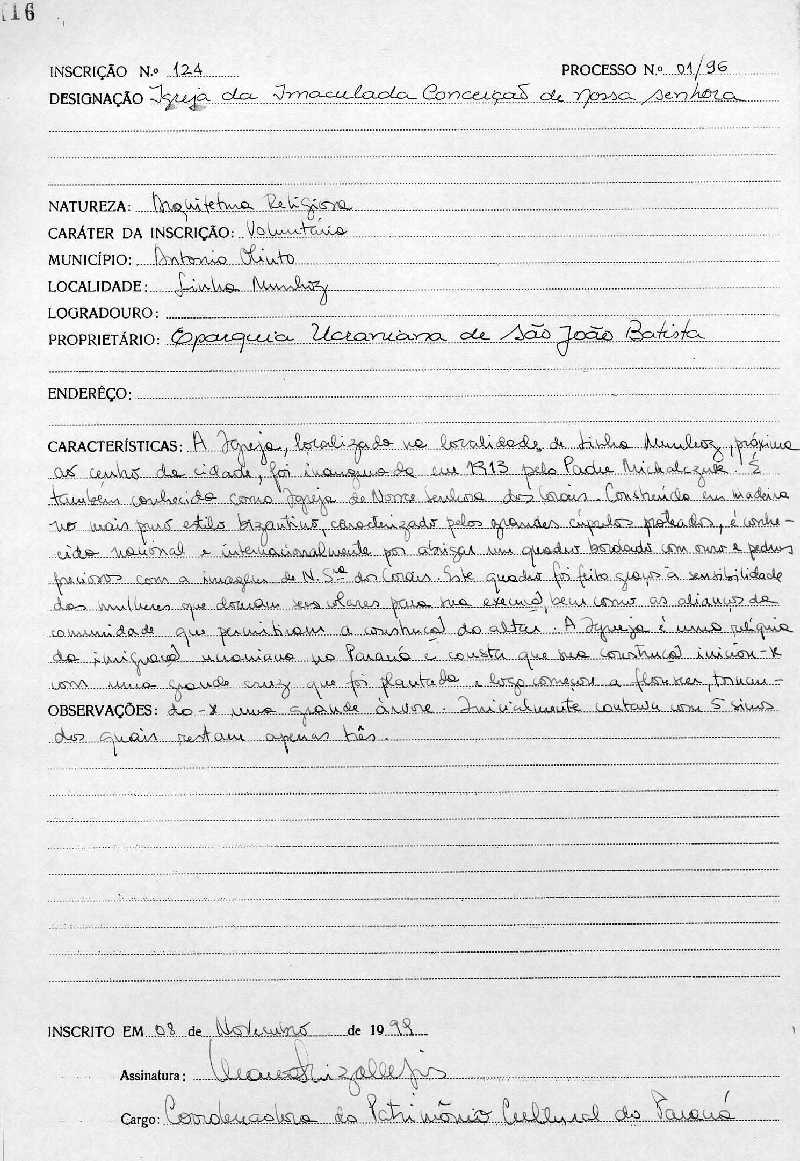 116
INSCRIÇÃO N.º 124 PROCESSO N.º 01/96
DESIGNAÇÃO Igreja da Imaculada Conceição de Nossa Senhora
NATUREZA: Arquitetura Religiosa
CARÁTER DA INSCRIÇÃO: Voluntária
MUNICÍPIO: Antonio Olinto
LOCALIDADE: Linha Munhoz
LOGRADOURO:
PROPRIETÁRIO: Eparquia Ucraniana de São João Batista
ENDERÊÇO:
CARACTERÍSTICAS: A Igreja, localizada na localidade de Linha Munhoz, próxima
ao centro da cidade, foi inaugurada em 1913 pelo Padre Michalczuk. É
também conhecida como Igreja de Nossa Senhora dos Corais. Construída em madeira
no mais puro estilo bizantino, caracterizado pelas grandes cúpulas prateadas, é conhe-
cida nacional e internacionalmente por abrigar um quadro bordado com ouro e pedras
preciosas com a imagem de N. Sra dos Corais. Este quadro foi feito graças à sensibilidade
das mulheres que doaram seus colares para sua execução, bem como as alianças da
comunidade que permitiram a construção do altar. A Igreja é uma relíquia
da imigração ucraniana no Paraná e consta que sua construção iniciou-se
com uma grande cruz que foi plantada e logo começou a florescer, tornan-
OBSERVAÇÕES: do-se uma grande árvore. Inicialmente contava com 5 sinos
dos quais restam apenas três.
INSCRITO EM 08 de Novembro de 1999
Assinatura:
Cargo: Coordenadora do Patrimônio Cultural do Paraná